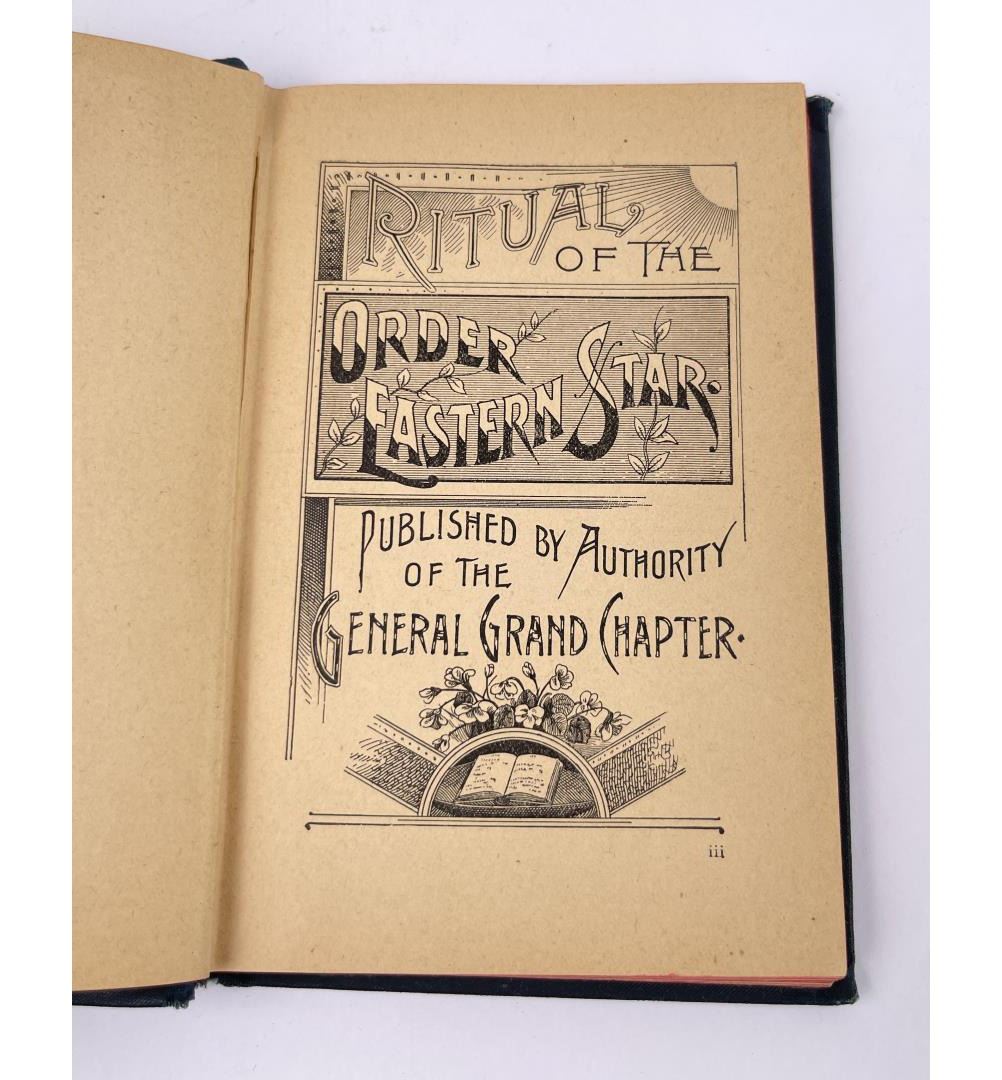 RITUAL
OF THE
ORDER
EASTERN STAR.
PUBLISHED BY AUTHORITY
OF THE
GENERAL GRAND CHAPTER.
iii